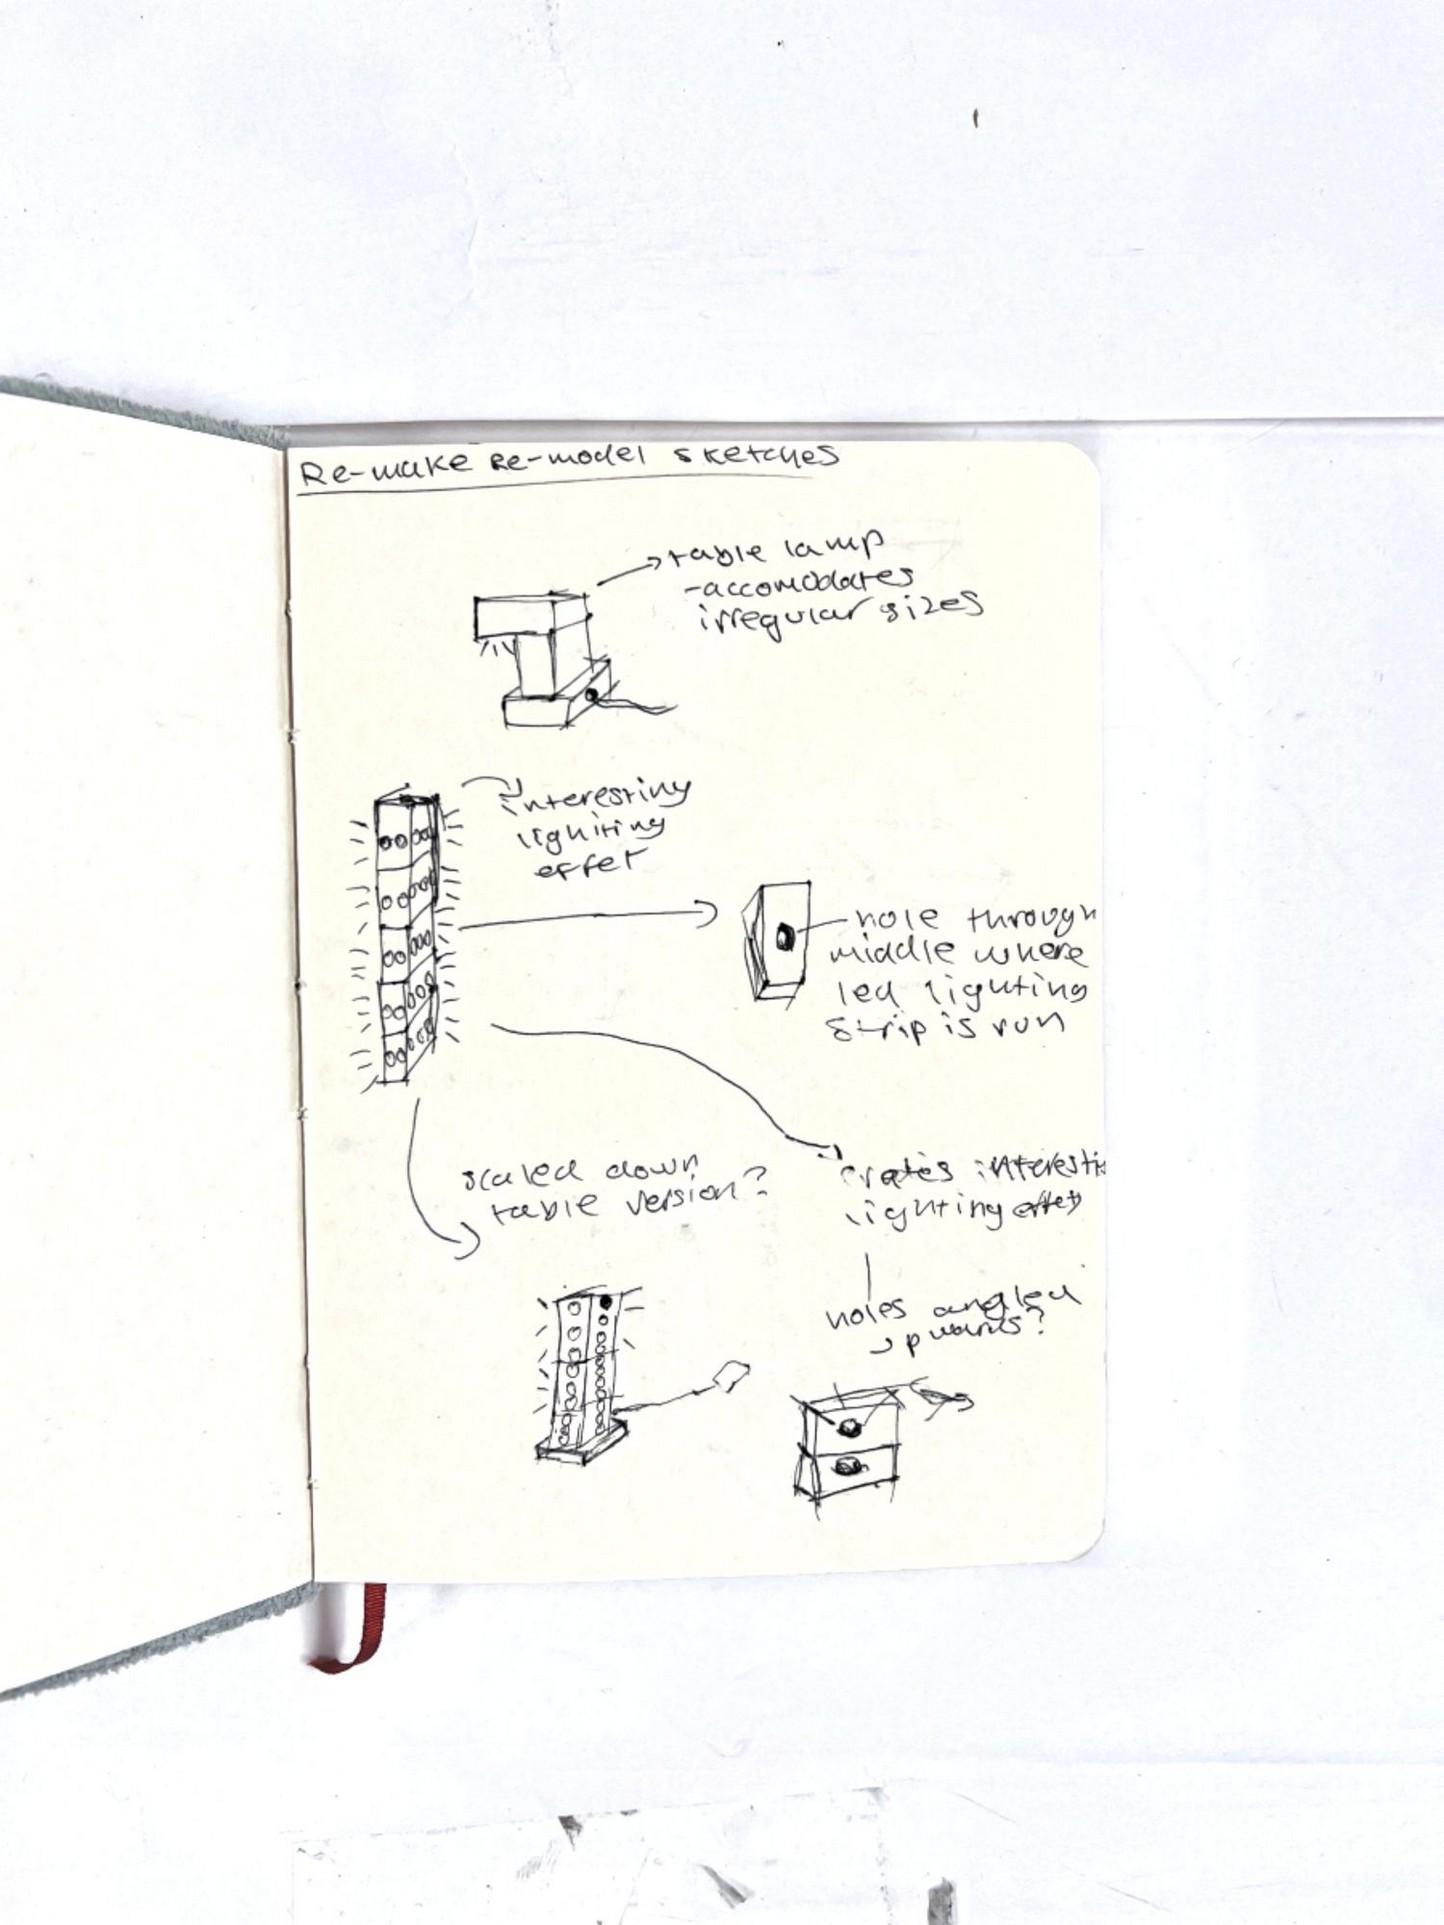 Re-make Re-model sketches
table lamp
-accomodates
irregular sizes
interesting
lighting
effet
hole through
middle where
led lighting
strip is run
scaled down
table version?
interesti
lighting effet
holes angled
upwards?